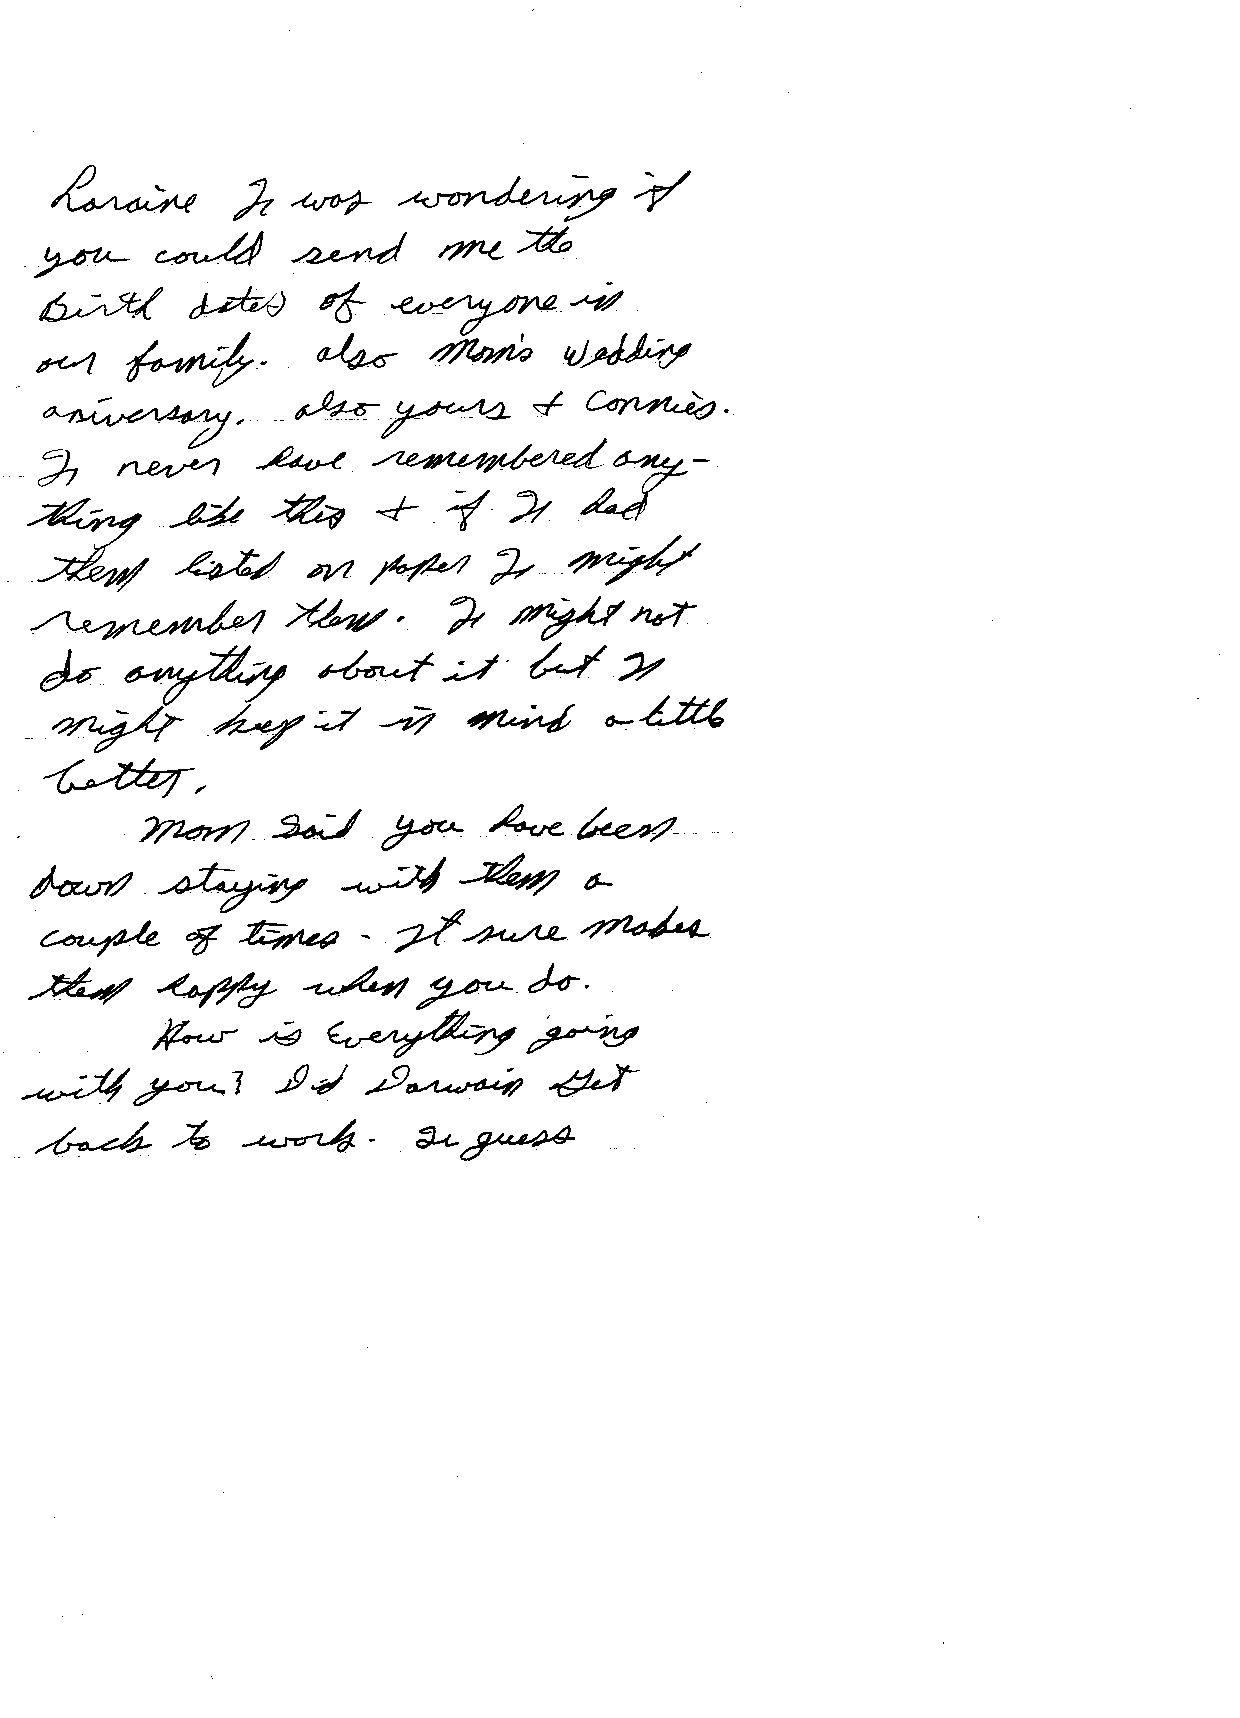 Loraine I was wondering if
you could send me the
Birth dates of everyone in
our family. also Mom's wedding
aniversary. also yours + Connies.
I never have remembered any-
thing like this + if I had
them listed on paper I might
remember them. I might not
do anything about it but I
might keep it in mind a little
better.
Mom said you have been
down staying with them a
couple of times - It sure makes
them happy when you do.
How is Everything going
with you? Did Darwain Get
back to work. I guess